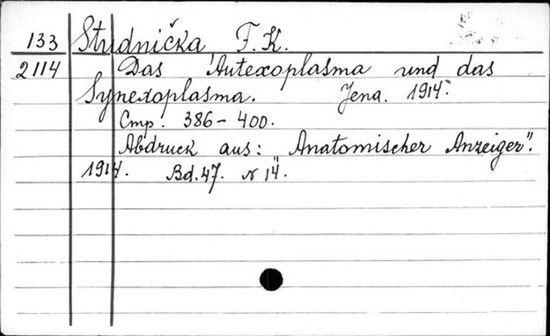 133 Studnička F. K.
2114 Das Autexoplasma und das
Synexoplasma. Jena. 1914.
Cmp. 386-400.
Abdruck aus: "Anatomischer Anzeiger".
1914. Bd. 47. N 14.